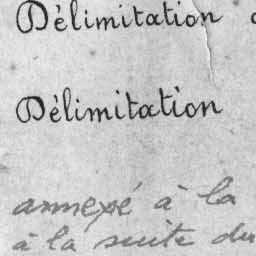 Délimitation
Délimitation
annexé à la
à la suite du